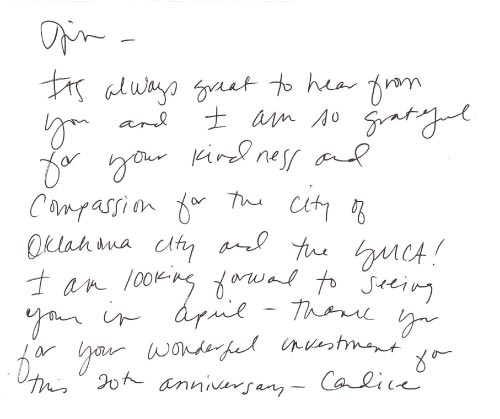 Jim -
Its always great to hear from
you and I am so grateful
for your kindness and
Compassion for the city of
Oklahoma city and the YMCA!
I am looking forward to seeing
your in April - Thank you
for your wonderful investment for
this 20th anniversary - Candice